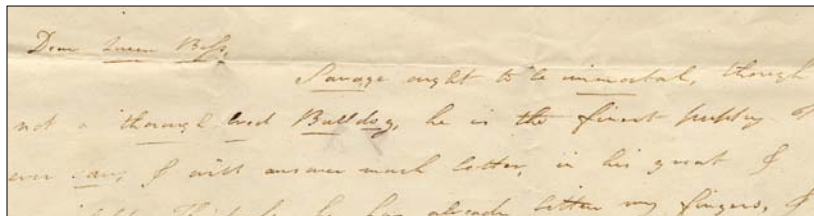 Dear Queen Bess,
Savage ought to be immortal, though
not a thorough bred Bulldog, he is the finest puppy I
ever saw, & will answer much better, in his great &
he has already bitten my fingers, &